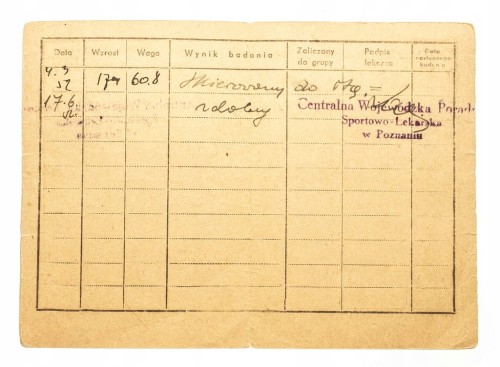 Data Wzrost Waga Wynik badania Zaliczony do grupy Podpis lekarza Data następnego badania
4.3 52 174 60.8 Skierowany do
17.6 52 zdolny
Centralna Wojewódzka Porad
Sportowo-Lekarska
w Poznaniu